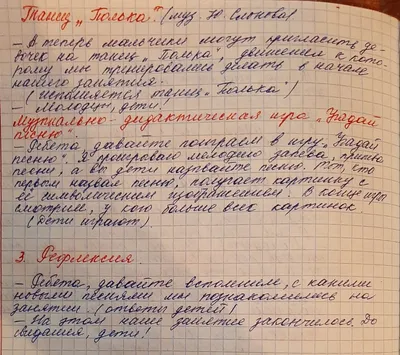 Танец „Полька". (муз. Ю Слонова)
– А теперь мальчики могут пригласить де-
вочек на танец „Полька", движения к кото-
рому мы тренировались делать в начале
нашего занятия.
(исполняется танец „Полька")
– Молодцы, дети!
Музыкально-дидактическая игра „Угадай
песню".
– Ребята, давайте поиграем в игру „Угадай
песню". Я проигрываю мелодию запева, припева
песни, а вы дети называйте песню. Тот, кто
первым назвал песню, получает картинку с
её символическим изображением. В конце игры
смотрим, у кого больше всех картинок
(Дети играют).
3. Рефлексия.
– Ребята, давайте вспомним, с какими
новыми песнями мы познакомились на
занятии. (ответы детей)
– На этом наше занятие закончилось. До
свидания, дети!